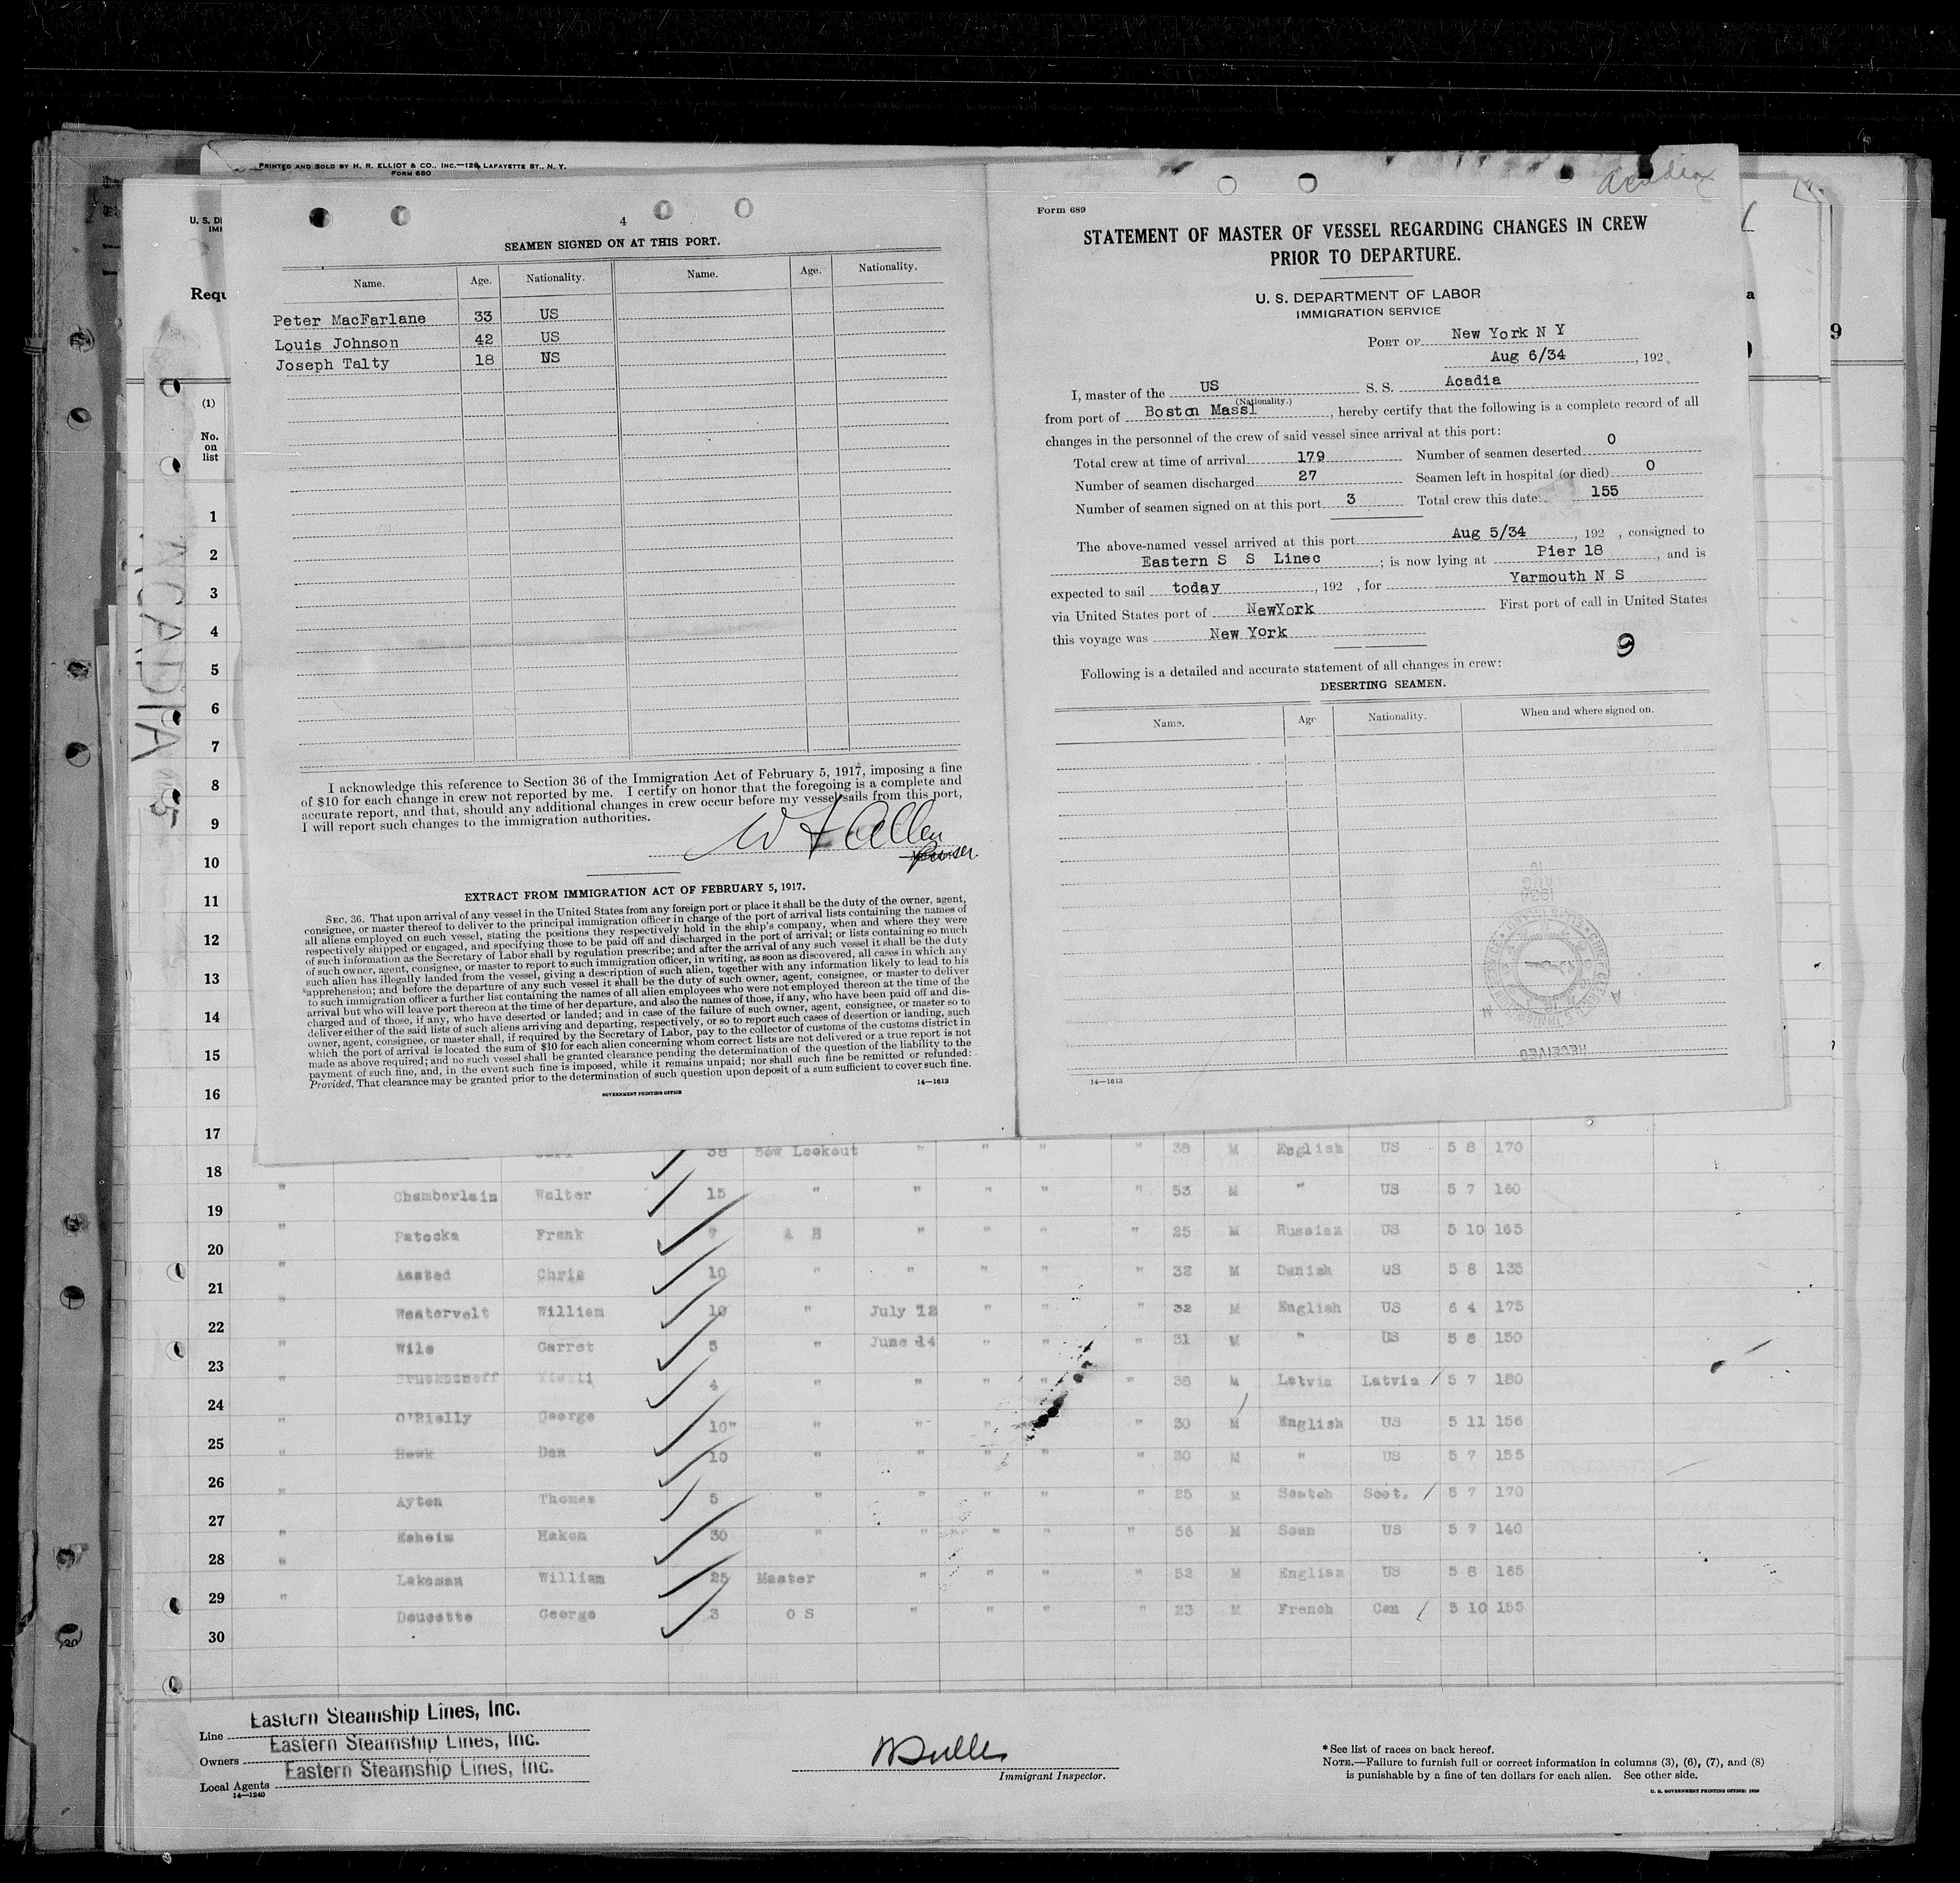 PRINTED AND SOLD BY H. R. ELLIOT & CO., INC.—128 LAFAYETTE ST., N. Y.
FORM 680
4
SEAMEN SIGNED ON AT THIS PORT.
Name. Age. Nationality. Name. Age. Nationality.
Peter MacFarlane 33 US
Louis Johnson 42 US
Joseph Talty 18 NS
I acknowledge this reference to Section 36 of the Immigration Act of February 5, 1917, imposing a fine
of $10 for each change in crew not reported by me. I certify on honor that the foregoing is a complete and
accurate report, and that, should any additional changes in crew occur before my vessel sails from this port,
I will report such changes to the immigration authorities.
W F Allen
purser
EXTRACT FROM IMMIGRATION ACT OF FEBRUARY 5, 1917.
SEC. 36. That upon arrival of any vessel in the United States from any foreign port or place it shall be the duty of the owner, agent,
consignee, or master thereof to deliver to the principal immigration officer in charge of the port of arrival lists containing the names of
all aliens employed on such vessel, stating the positions they respectively hold in the ship's company, when and where they were
respectively shipped or engaged, and specifying those to be paid off and discharged in the port of arrival; or lists containing so much
of such information as the Secretary of Labor shall by regulation prescribe; and after the arrival of any such vessel it shall be the duty
of such owner, agent, consignee, or master to report to such immigration officer, in writing, as soon as discovered, all cases in which any
such alien has illegally landed from the vessel, giving a description of such alien, together with any information likely to lead to his
apprehension; and before the departure of any such vessel it shall be the duty of such owner, agent, consignee, or master to deliver
to such immigration officer a further list containing the names of all alien employees who were not employed thereon at the time of the
arrival but who will leave port thereon at the time of her departure, and also the names of those, if any, who have been paid off and dis-
charged and of those, if any, who have deserted or landed; and in case of the failure of such owner, agent, consignee, or master so to
deliver either of the said lists of such aliens arriving and departing, respectively, or so to report such cases of desertion or landing, such
owner, agent, consignee, or master shall, if required by the Secretary of Labor, pay to the collector of customs of the customs district in
which the port of arrival is located the sum of $10 for each alien concerning whom correct lists are not delivered or a true report is not
made as above required; and no such vessel shall be granted clearance pending the determination of the question of the liability to the
payment of such fine, and, in the event such fine is imposed, while it remains unpaid; nor shall such fine be remitted or refunded:
Provided, That clearance may be granted prior to the determination of such question upon deposit of a sum sufficient to cover such fine.
GOVERNMENT PRINTING OFFICE
14—1613
Acadia
Form 689
STATEMENT OF MASTER OF VESSEL REGARDING CHANGES IN CREW
PRIOR TO DEPARTURE.
U. S. DEPARTMENT OF LABOR
IMMIGRATION SERVICE
PORT OF New York N Y
Aug 6/34, 192
I, master of the US S. S. Acadia
(Nationality.)
from port of Boston Massl, hereby certify that the following is a complete record of all
changes in the personnel of the crew of said vessel since arrival at this port:
Total crew at time of arrival 179 Number of seamen deserted 0
Number of seamen discharged 27 Seamen left in hospital (or died) 0
Number of seamen signed on at this port 3 Total crew this date 155
The above-named vessel arrived at this port Aug 5/34, 192 , consigned to
Eastern S S Linec ; is now lying at Pier 18, and is
expected to sail today, 192 , for Yarmouth N S
via United States port of NewYork First port of call in United States
this voyage was New York
9
Following is a detailed and accurate statement of all changes in crew:
DESERTING SEAMEN.
Name. Age Nationality. When and where signed on.
RECEIVED
14—1613
U. S. D
IMI
Requ
a
9
ACADIA
(1)
No.
on
list
1
2
3
4
5
6
7
8
9
10
11
12
13
14
15
16
17
18 38 Bow Lookout " " " " 38 M English US 5 8 170
19 " Chamberlain Walter 15 " " " " " 53 M " US 5 7 160
20 " Patocka Frank 7 A B " " " " 25 M Russian US 5 10 165
21 " Aasted Chris 10 " " " " " 32 M Danish US 5 8 135
22 " Westervelt William 10 " July 12 " " " 32 M English US 6 4 175
23 " Wile Garret 5 " June 14 " " " 31 M " US 5 8 150
24 " 4 " " " " " 38 M Latvia Latvia / 5 7 180
25 " O'Rielly George 10" " " " " 30 M English US 5 11 156
26 " Hawk Dan 10 " " " " " 30 M " US 5 7 155
27 " Ayton Thomas 5 " " " " " 25 M Scotch Scot. / 5 7 170
28 " Esheim Haken 30 " " " " " 56 M Scan US 5 7 140
29 " Lakeman William 25 Master " " " " 52 M English US 5 8 165
30 " Doucette George 3 O S " " " " 23 M French Can / 5 10 155
Line Eastern Steamship Lines, Inc.
Owners Eastern Steamship Lines, Inc.
Local Agents Eastern Steamship Lines, Inc.
14—1240
Immigrant Inspector.
* See list of races on back hereof.
NOTE.—Failure to furnish full or correct information in columns (3), (6), (7), and (8)
is punishable by a fine of ten dollars for each alien. See other side.
U. S. GOVERNMENT PRINTING OFFICE: 1929